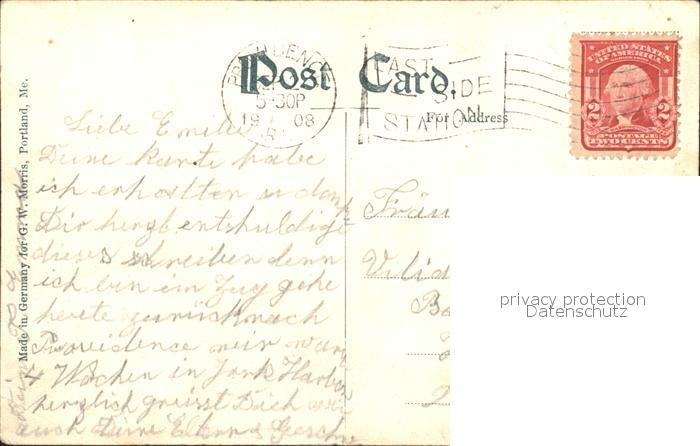 Post Card.
For Address
PROVIDENCE
5-30P
19 08
R.I.
EAST
SIDE
STATION
UNITED STATES
OF AMERICA
2 2
POSTAGE
TWO CENTS
Made in Germany for G. W. Morris, Portland, Me.
Liebe Emilie
Deine Karte habe
ich erhalten u. dank
Dir herzl. entschuldige
dieses schreiben denn
ich bin im Zug gehe
heute zurück nach
Providence wir waren
4 Wochen in York Harbor
herzlich grüsst Dich wie
auch Deine Eltern & Geschw
Fräu
privacy protection
Datenschutz